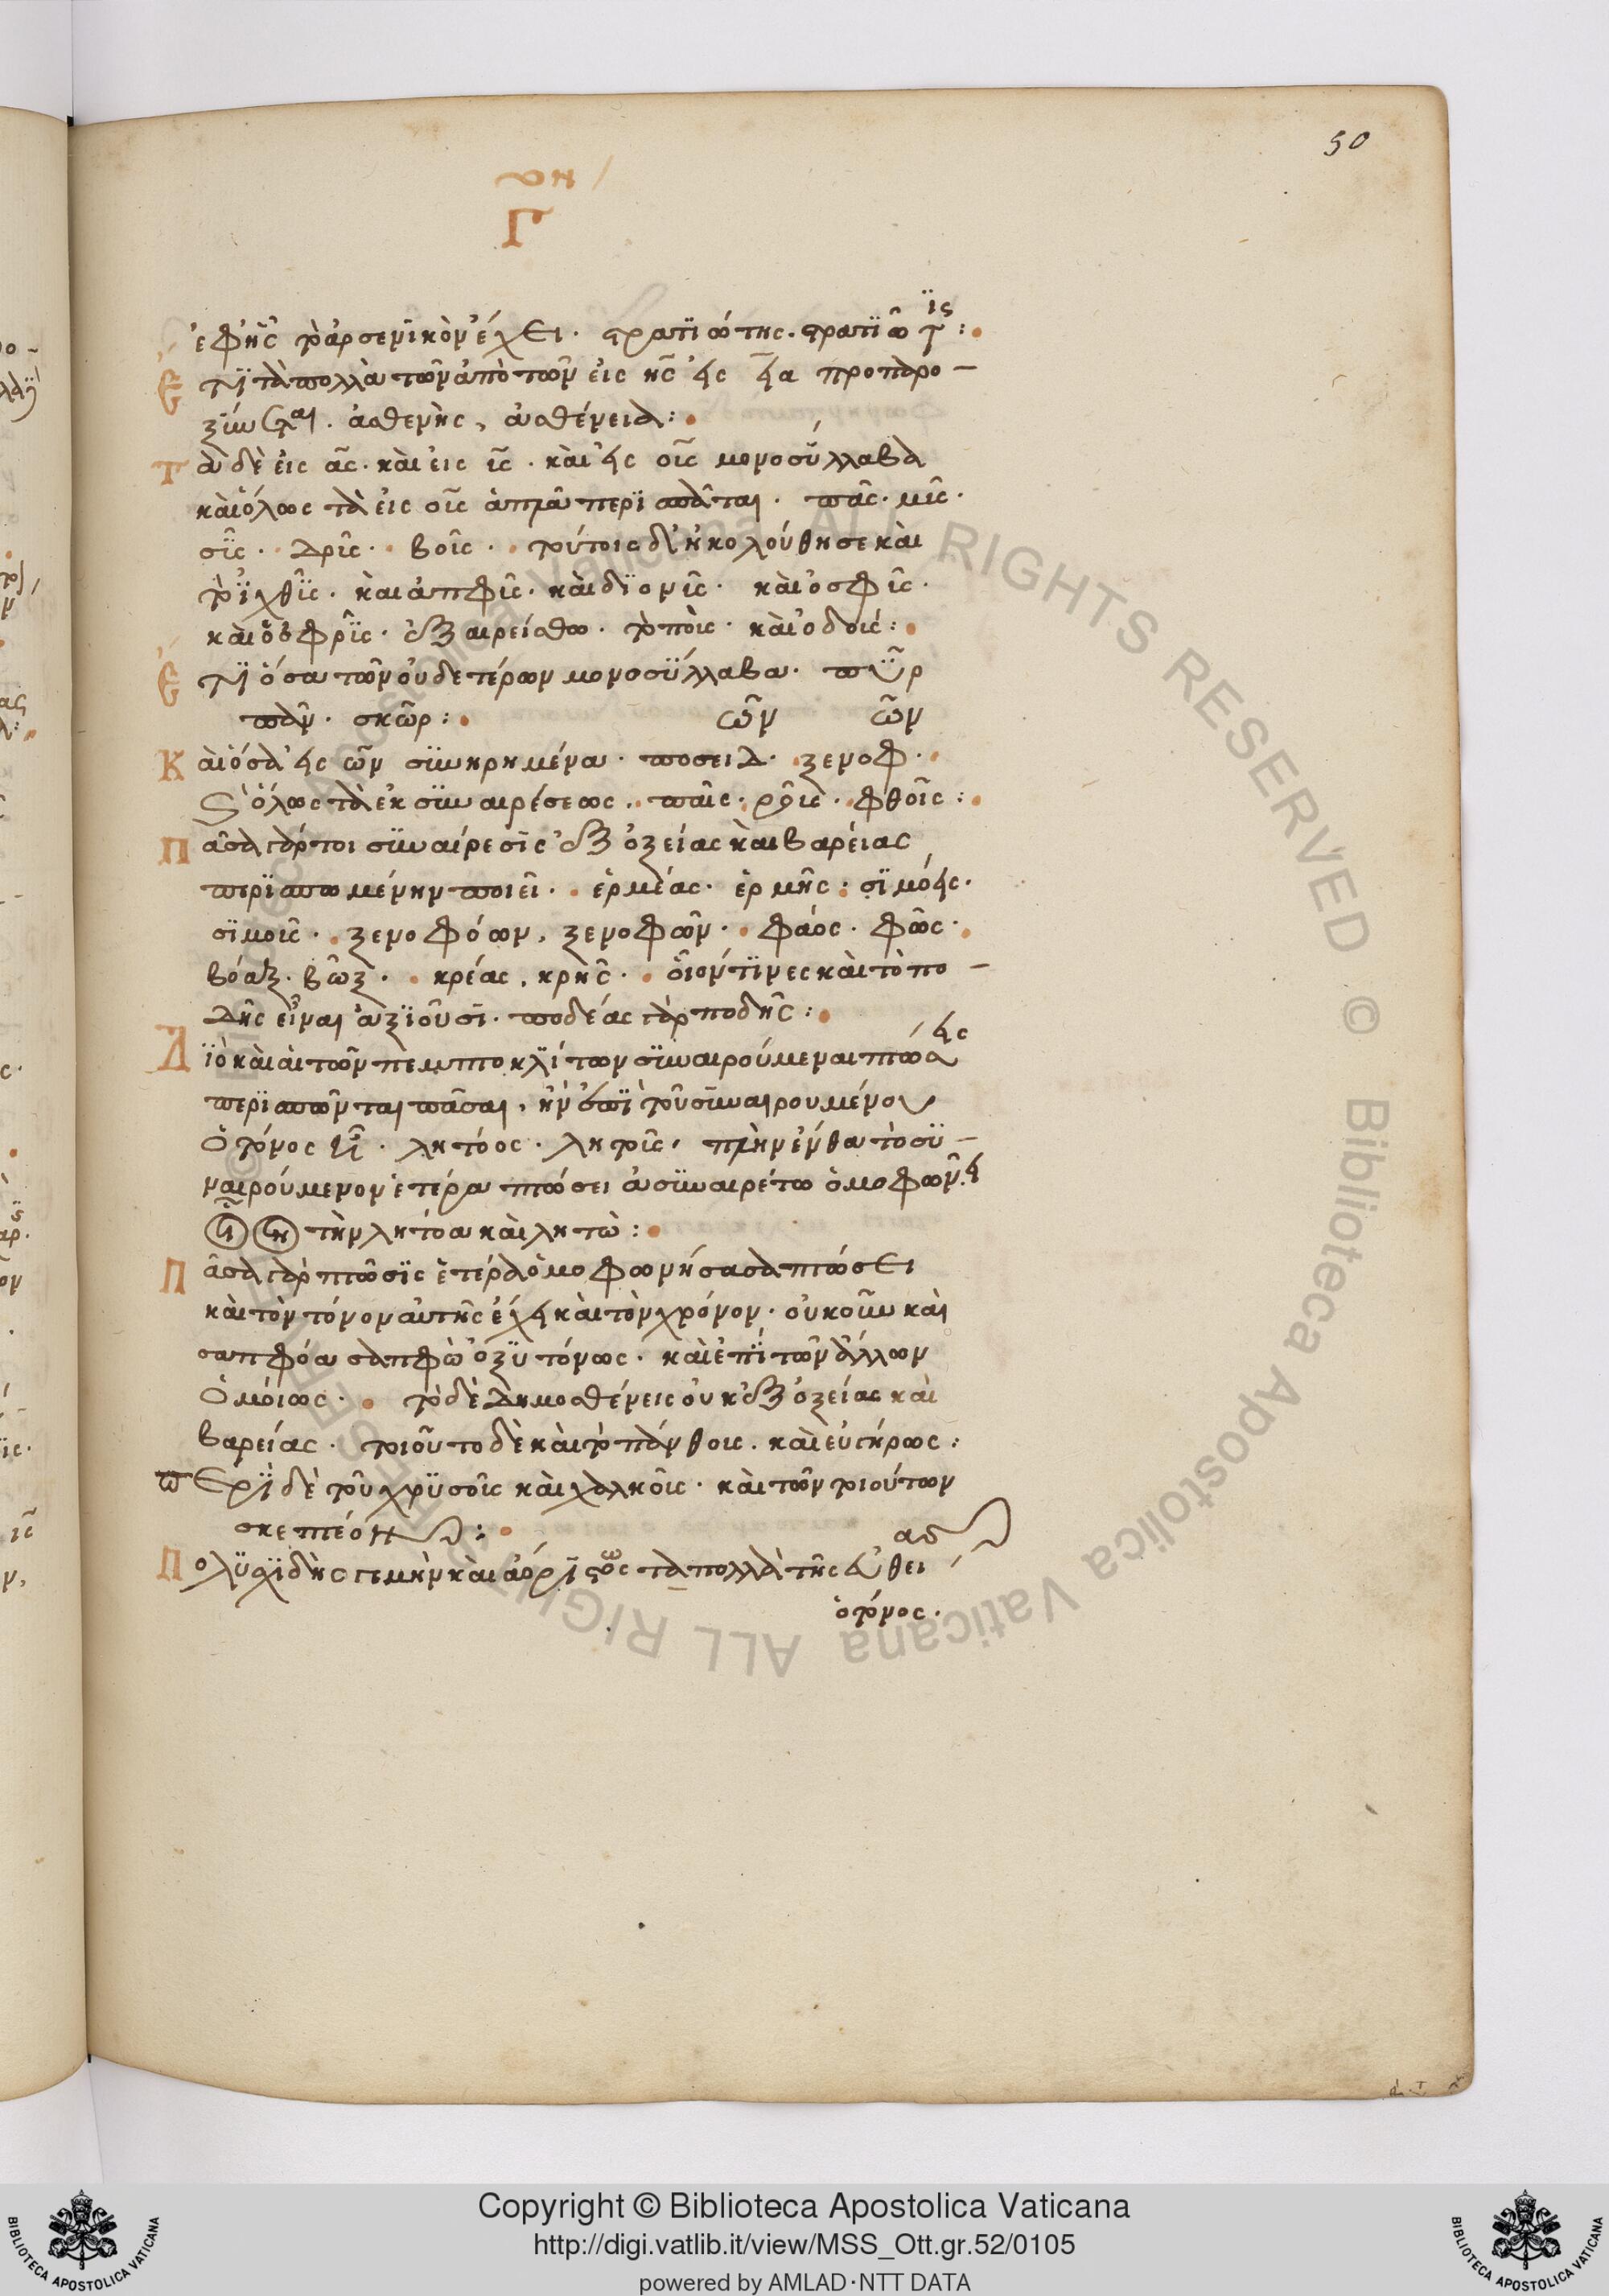 50
Γ
ἐφ' ἧς τὸ ἀρσενικὸν ἔχει. στρατιώτης. στρατιῶτις:
Ἔτι τὰ πολλὰ τῶν ἀπὸ τῶν εἰς ης εἰς εια προπαρο-
ξύνεται. ἀσθενὴς, ἀσθένεια:
Τὰ δὲ εἰς ας. καὶ εἰς ις. καὶ εἰς οις μονοσύλλαβα
καὶ ὅλως τὰ εἰς οις ἁπλᾶ περισπᾶται. πᾶς. μῖς.
σῖς. δρῖς. βοῖς. τούτοις δ' ἠκολούθησε καὶ
τὸ ἰχθῖς. καὶ ἀπφῖς. καὶ διονῖς. καὶ ὀσφῖς.
καὶ ὀφρῖς. ἐξαιρείσθω. τὸ ποὶς. καὶ ὀδοίς:
Ἔτι ὅσα τῶν οὐδετέρων μονοσύλλαβα. πῦρ
πᾶν. σκῶρ:
ῶν ῶν
Καὶ ὅσα εἰς ῶν συνηρημένα. ποσειδ. ξενοφ.
καὶ ὅλως τὰ ἐκ συναιρέσεως. παῖς. φθοῖς:
Πᾶσα γάρ τοι συναίρεσις ἐξ ὀξείας καὶ βαρείας
περισπωμένην ποιεῖ. ἑρμέας. ἑρμῆς: σιμόεις.
σιμοῖς. ξενοφόων, ξενοφῶν. φάος. φῶς.
βόαξ. βῶξ. κρέας, κρῆς. οἷόν τινες καὶ τὸ πο-
δῆς εἶναι ἀξιοῦσι. ποδέας γὰρ ποδῆς:
Διὸ καὶ αἱ τῶν πεμπτοκλίτων συναιρούμεναι πτώσεις
περισπῶνται πᾶσαι, ἢν ἐπὶ τοῦ συναιρουμένου
ὁ τόνος ᾖ. λητόος. λητοῖς, πλὴν ἔνθα τὸ συ-
ναιρούμενον ἑτέρα πτώσει ἀσυναιρέτω ὁμοφωνεῖ
τὴν λητόα καὶ λητὼ:
Πᾶσα γὰρ πτῶσις ἑτέρα ὁμοφωνήσασα πτώσει
καὶ τὸν τόνον αὐτῆς ἔχει καὶ τὸν χρόνον. οὐκοῦν καὶ
σαπφόα σαπφὼ ὀξυτόνως. καὶ ἐπὶ τῶν ἄλλων
ὁμοίως. τὸ δὲ δημοσθένεις οὐκ ἐξ ὀξείας καὶ
βαρείας. τοιοῦτο δὲ καὶ τὸ πάνθοις. καὶ εὐγήρως:
Περὶ δὲ τοῦ χρυσοῖς καὶ χαλκοῖς. καὶ τῶν τοιούτων
σκεπτέον:
Πολυσχιδής γε μὴν καὶ ἀόριστος τὰ πολλὰ τῆς εὐθείας
ὁ τόνος.
ALL RIGHTS RESERVED © Biblioteca Apostolica Vaticana
Copyright © Biblioteca Apostolica Vaticana
http://digi.vatlib.it/view/MSS_Ott.gr.52/0105
powered by AMLAD·NTT DATA
BIBLIOTECA APOSTOLICA VATICANA
BIBLIOTECA APOSTOLICA VATICANA